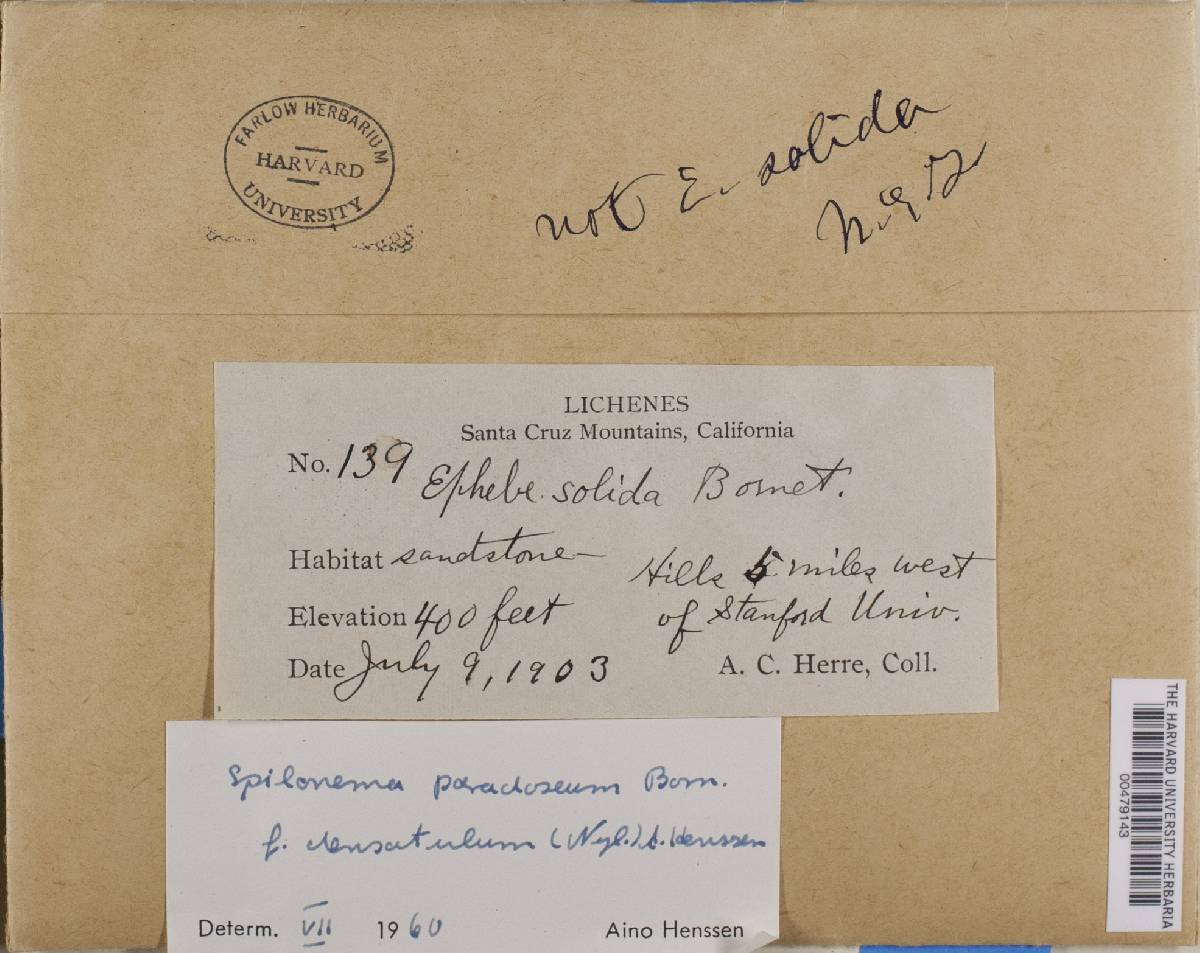 FARLOW HERBARIUM
HARVARD
UNIVERSITY
not E. solida
LICHENES
Santa Cruz Mountains, California
No. 139 Ephebe solida Bornet.
Habitat sandstone
Hills 5 miles west
Elevation 400 feet
of Stanford Univ.
Date July 9, 1903
A. C. Herre, Coll.
Spilonema paradoxum Born.
f. densatulum (Nyl.) A. Henssen
Determ. VII 1960 Aino Henssen
THE HARVARD UNIVERSITY HERBARIA
00479143